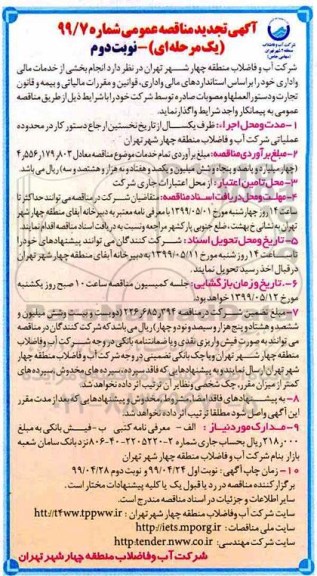 آگهی تجدید مناقصه عمومی شماره ۹۹/۷
(یک مرحله ای) - نوبت دوم
شرکت آب و فاضلاب منطقه چهار شهر تهران در نظر دارد انجام بخشی از خدمات مالی
واداری خود را بر اساس استانداردهای مالی واداری، قوانین و مقررات مالیاتی و بیمه و قانون
تجارت و دستورالعملها و مصوبات صادره توسط شرکت خود را با شرایط ذیل از طریق مناقصه
عمومی به پیمانکار واجد شرایط واگذار نماید.
۱-مدت و محل اجراء: ظرف یکسال از تاریخ نخستین ارجاع دستور کار در محدوده
عملیاتی شرکت آب و فاضلاب منطقه چهار شهر تهران
۲-مبلغ برآوردی مناقصه: مبلغ برآوردی تمام خدمات موضوع مناقصه معادل ۴,۵۵۶,۱۷۹,۸۰۳
(چهار میلیارد و پانصد و پنجاه و شش میلیون و یکصد و هفتاد و نه هزار و هشتصد و سه) ریال می باشد
۳-محل تامین اعتبار: از محل اعتبارات جاری شرکت
۴-مهلت و محل دریافت اسناد مناقصه: متقاضیان شرکت در مناقصه می توانند حداکثر تا
ساعت ۱۴ روز چهارشنبه مورخ ۱۳۹۹/۰۵/۰۱ با معرفی نامه معتبر به دبیرخانه آبفای منطقه چهار شهر
تهران به نشانی بهشت، ضلع جنوبی پارکشهر مراجعه و نسبت به دریافت اسناد مناقصه اقدام نمایند.
۵-تاریخ و محل تحویل اسناد: شرکت کنندگان می توانند پیشنهادهای خود را
تا ساعت ۱۴ روز شنبه مورخ ۱۳۹۹/۰۵/۱۱ به دبیرخانه آبفای منطقه چهار شهر تهران
در قبال اخذ رسید تحویل نمایند.
۶-تاریخ و زمان بازگشایی: جلسه کمیسیون مناقصه ساعت ۱۰ صبح روز یکشنبه
مورخ ۱۳۹۹/۰۵/۱۲ خواهد بود.
۷-مبلغ تضمین شرکت در مناقصه ۲۲۶,۶۸۵,۳۹۴ (دویست و بیست و شش میلیون و
ششصد و هشتاد و پنج هزار و سیصد و نود و چهار) ریال می باشد که شرکت کنندگان در مناقصه
می توانند به صورت فیش واریزی نقدی و یا ضمانتنامه بانکی در وجه شرکت آب و فاضلاب
منطقه چهار شهر تهران و یا چک بانکی تضمینی در وجه شرکت آب و فاضلاب منطقه چهار
شهر تهران ارسال نمایند و به پیشنهادهایی که فاقد سپرده، سپرده های مخدوش، سپرده های
کمتر از میزان مقرر، چک شخصی و نظایر آن ترتیب اثر داده نخواهد شد.
۸-به پیشنهادهای فاقد امضاء، مشروط، مخدوش و پیشنهادهایی که بعد از مدت مقرر
این آگهی واصل شود مطلقا ترتیب اثر داده نخواهد شد.
۹-مدارک مورد نیاز: الف - معرفی نامه کتبی ب - فیش بانکی به مبلغ
۲۱۸,۰۰۰ ریال بحساب جاری شماره ۲-۲۲۰۵۲۲-۴۰-۸۰۶ نزد بانک سامان شعبه
بازار بنام شرکت آب و فاضلاب منطقه چهار شهر تهران
۱۰-زمان چاپ آگهی: نوبت اول ۹۹/۰۴/۲۴ نوبت دوم ۹۹/۰۴/۲۸
برگزار کننده مناقصه در رد یا قبول یک یا کلیه پیشنهادات مختار است.
سایر اطلاعات و جزئیات در اسناد مناقصه مندرج است.
سایت شرکت: htt://t4ww.tppww.ir
سایت ملی مناقصات: http://iets.mporg.ir
سایت شرکت مهندسی: http:tender.nww.co.ir
شرکت آب و فاضلاب منطقه چهار شهر تهران